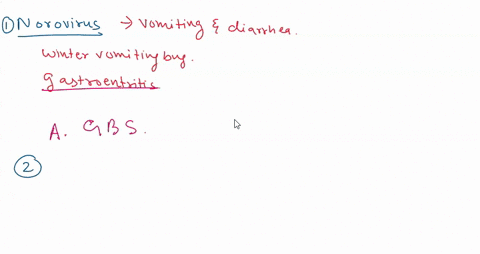 ① Norovirus → vomiting & diarrhea.
winter vomiting bug.
Gastroentritis
A. GBS.
②